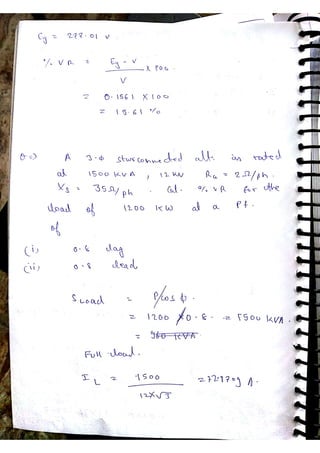 Eg = 278.01 V
% VR = Eg - V / V x 100
= 0.1561 X 100
= 15.61 %
Q) A 3-φ star connected alt. is rated
at 1500 KVA, 12 KV Ra = 2Ω/ph.
Xs = 35Ω/ph. Cal. % VR for the
load of 1200 KW at a P.f.
of
(i) 0.8 lag
(ii) 0.8 lead
S Load = P/cos φ.
= 1200 / 0.8. = 1500 KVA.
= 960 KVA
Full load.
I L = 1500 / 12x√3 = 72.1709 A.